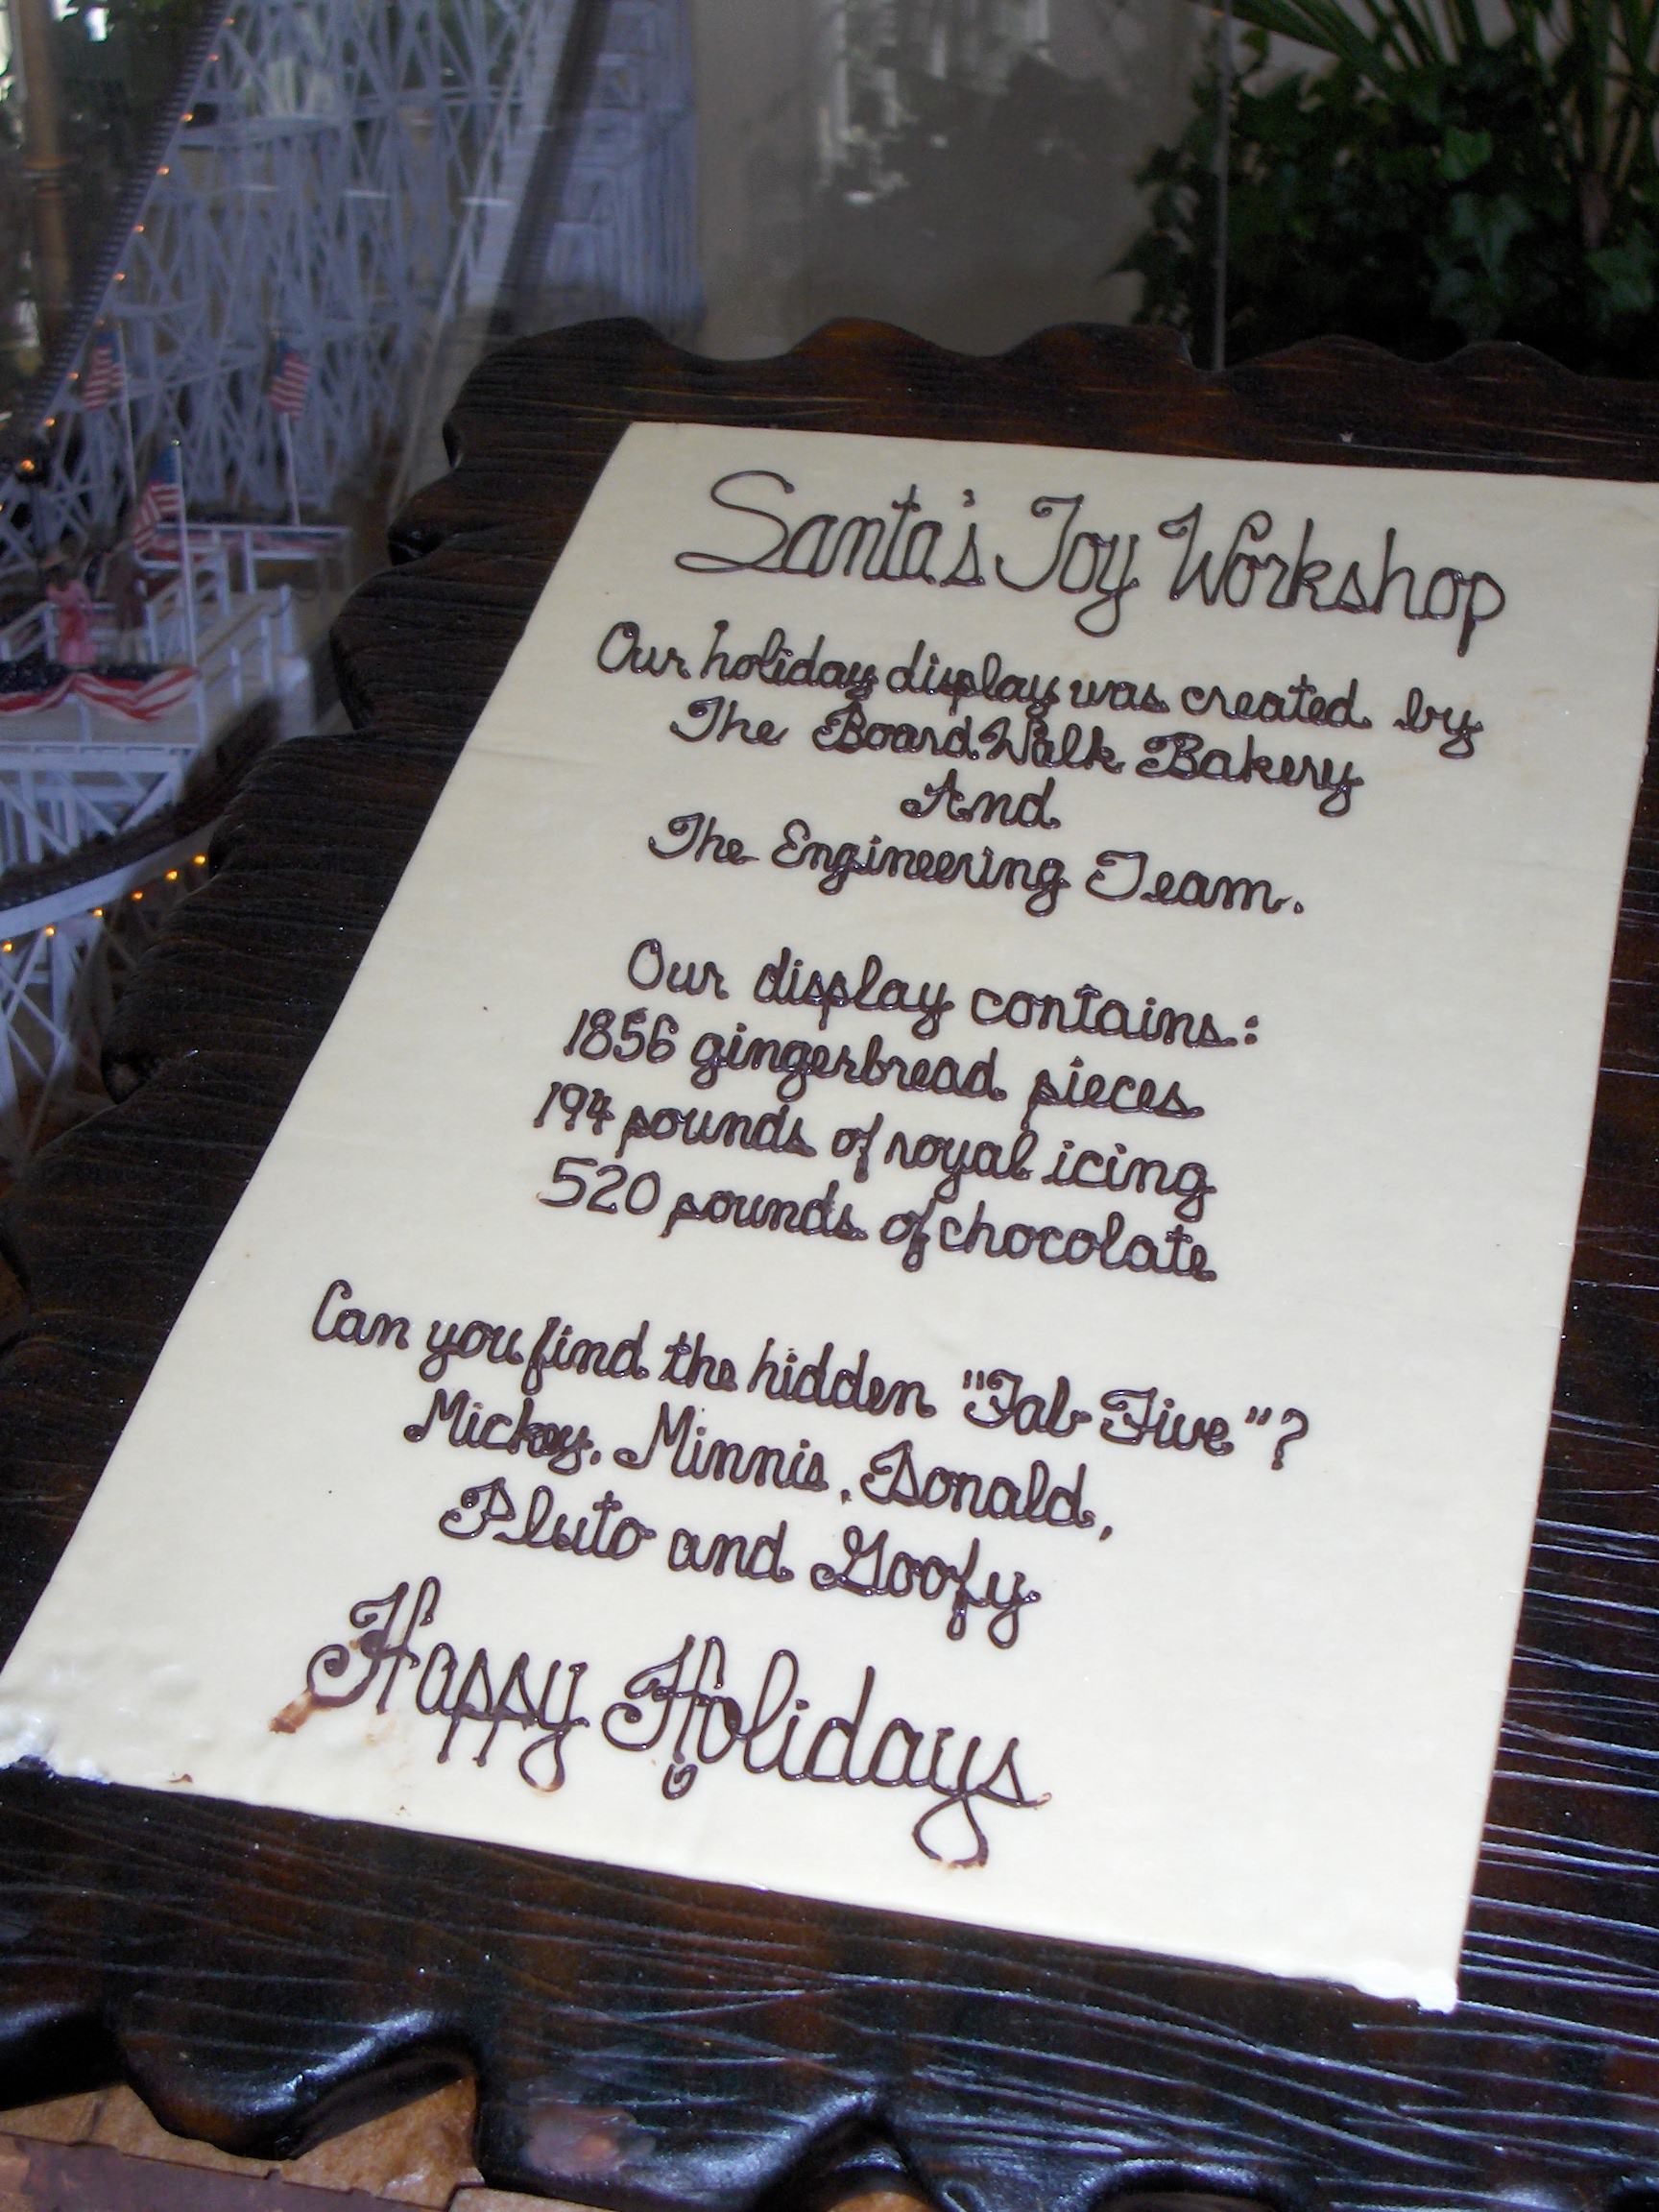 Santa's Toy Workshop
Our holiday display was created by
The BoardWalk Bakery
And
The Engineering Team.
Our display contains:
1856 gingerbread pieces
194 pounds of royal icing
520 pounds of chocolate
Can you find the hidden "Fab Five"?
Mickey, Minnie, Donald,
Pluto and Goofy
Happy Holidays